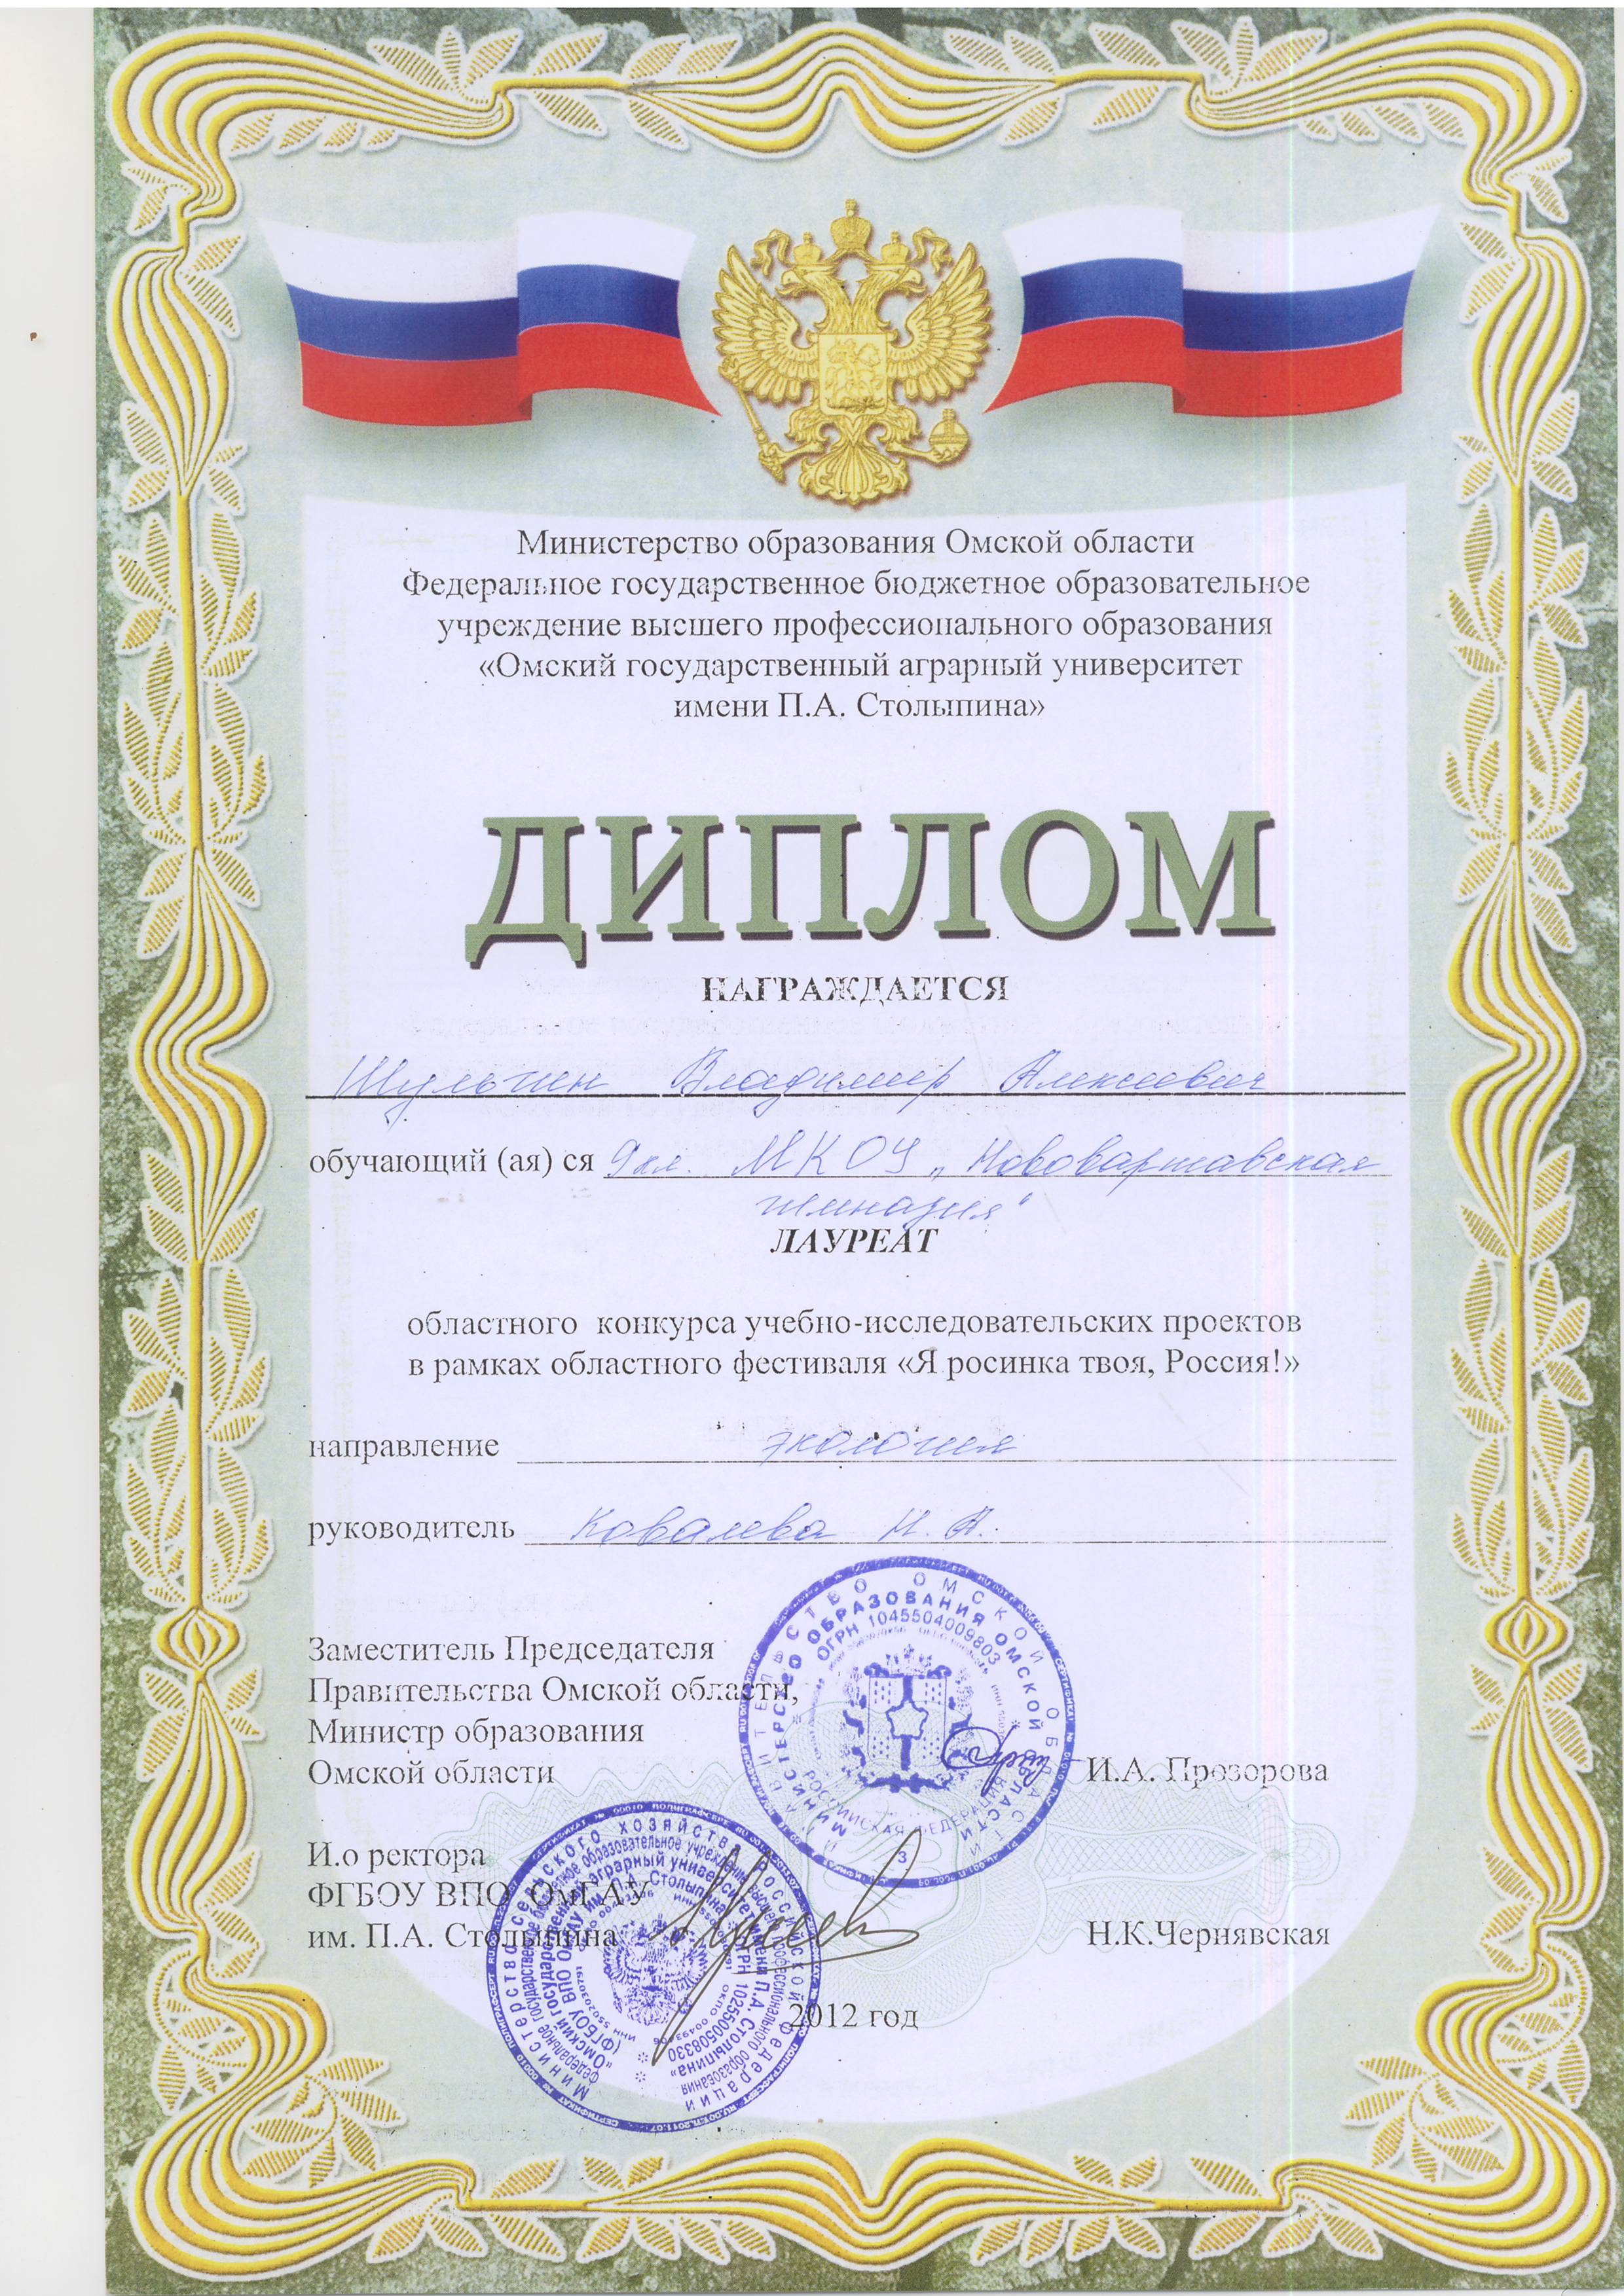 Министерство образования Омской области
Федеральное государственное бюджетное образовательное
учреждение высшего профессионального образования
«Омский государственный аграрный университет
имени П.А. Столыпина»
ДИПЛОМ
НАГРАЖДАЕТСЯ
Шульгин Владимир Алексеевич
обучающий (ая) ся 9 кл. МКОУ „Нововаршавская
гимназия“
ЛАУРЕАТ
областного конкурса учебно-исследовательских проектов
в рамках областного фестиваля «Я росинка твоя, Россия!»
направление экология
руководитель Ковалева Н. А.
Заместитель Председателя
Правительства Омской области,
Министр образования
Омской области И.А. Прозорова
ПРАВИТЕЛЬСТВО ОМСКОЙ ОБЛАСТИ
МИНИСТЕРСТВО ОБРАЗОВАНИЯ ОМСКОЙ ОБЛАСТИ
ОГРН 1045504009803
РОССИЙСКАЯ ФЕДЕРАЦИЯ
3
И.о ректора
ФГБОУ ВПО ОмГАУ
им. П.А. Столыпина Н.К.Чернявская
Министерство сельского хозяйства Российской Федерации
федеральное государственное бюджетное образовательное учреждение высшего профессионального образования
«Омский государственный аграрный университет имени П.А. Столыпина»
(ФГБОУ ВПО ОмГАУ им. П.А. Столыпина)
ОГРН 1025500508330
2012 год